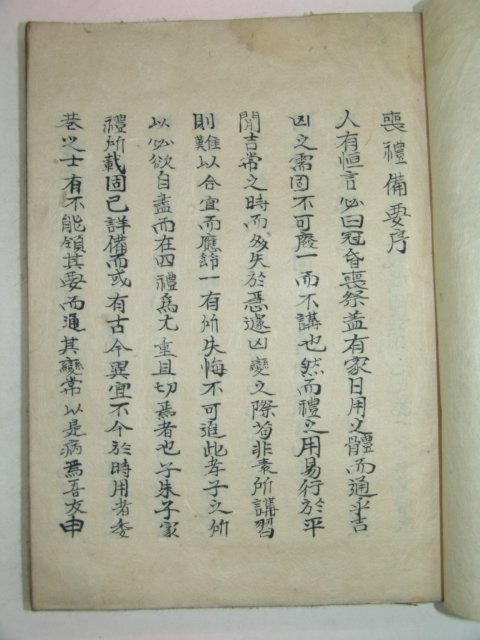 喪禮備要序
人有恒言必曰冠昏喪祭盖有家日用之體而通乎吉
凶之需固不可廢一而不講也然而禮之用易行於平
閒吉常之時而多失於惡遽凶變之際苟非素所講習
則難以合宜而應節一有所失悔不可追此孝子之所
以必欲自盡而在四禮爲尤重且切焉者也子朱子家
禮所載固已詳備而或有古今異宜不合於時用者委
巷之士有不能領其要而通其變常以是病焉吾友申